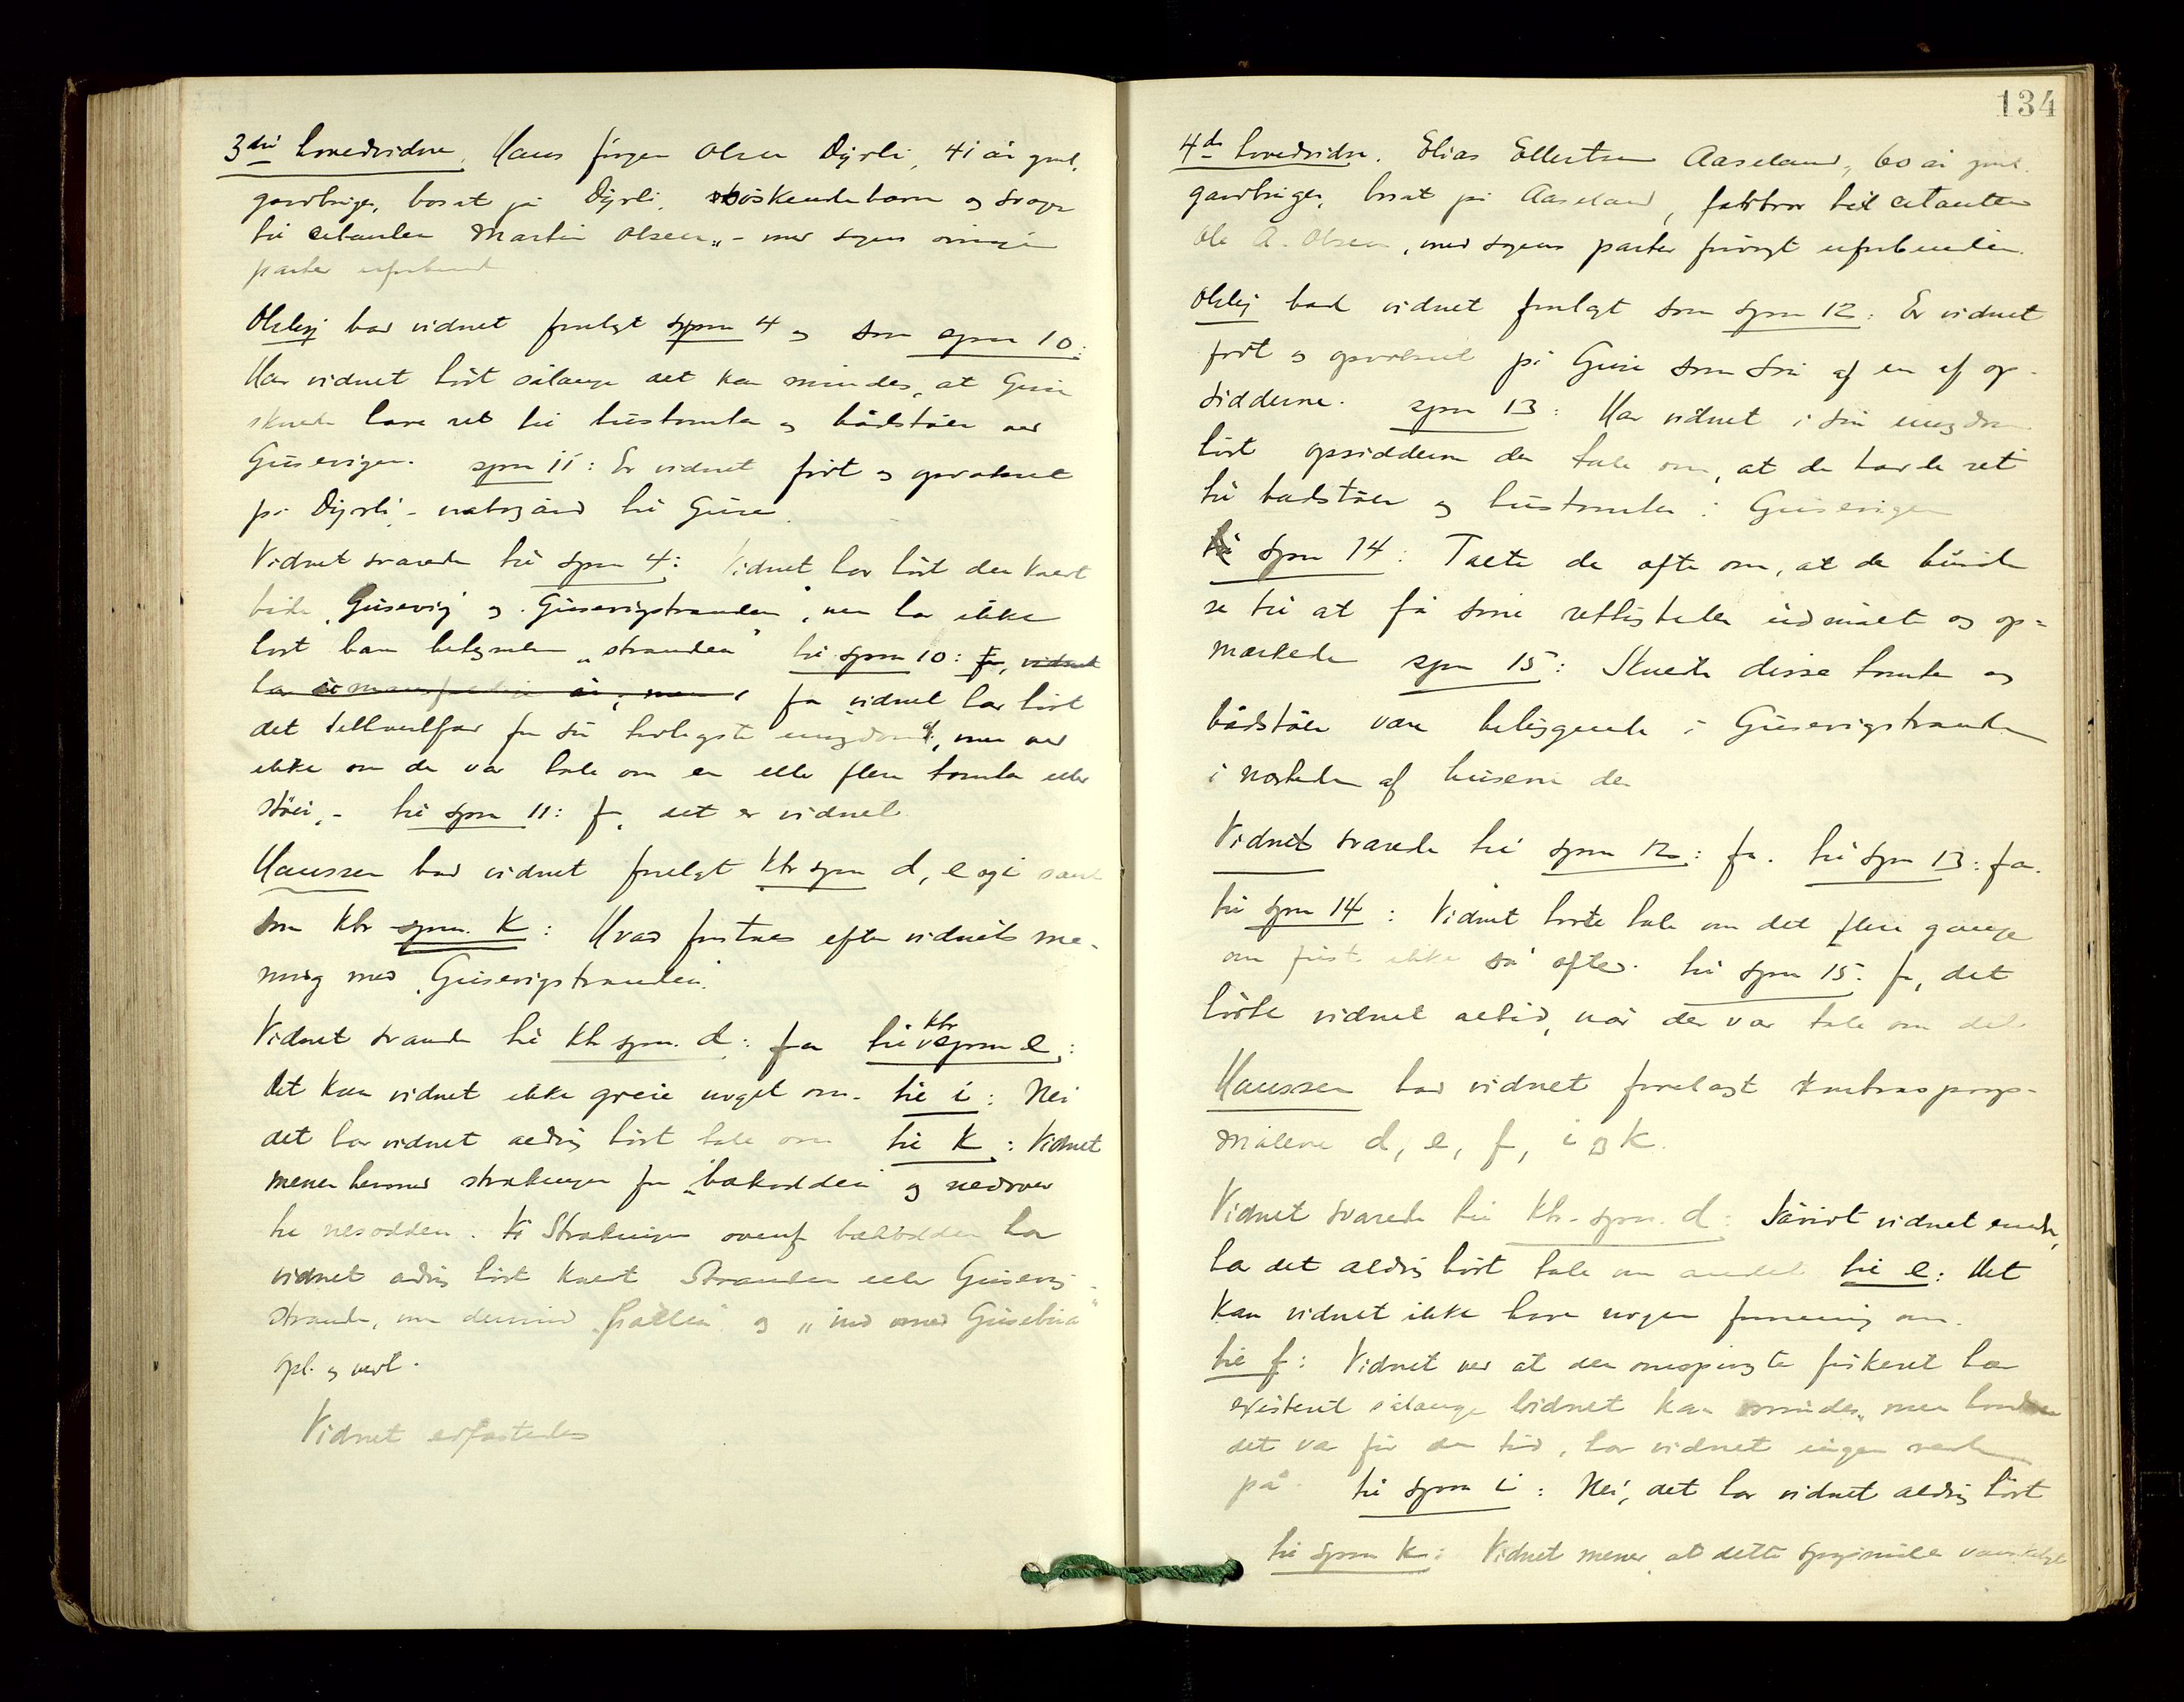 3die hovedvidne. Hans Jörgen Olsen Dyrli, 41 år gml.
gaardbruger, bosat på Dyrli, söskendebarn og svoger
til citanten Martin Olsen, - med sagens övrige
parter ubeslægtet
Okkej bad vidnet forelagt spm 4 og som spm 10:
Har vidnet hört sålænge det kan mindes, at Guse
skulde have ret til hustomter og bådstöer ved
Gusevigen. spm 11: Er vidnet födt og opvokset
på Dyrli - nabogård til Guse.
Vidnet svarede til spm 4: Vidnet har hört den kaldt
både „Gusevig" og „Gusevigstranden", men har ikke
hört ham betegnelsen „stranden" til spm 10: Ja, vidnet
har men, ja vidnet har hört
det fra sin tidligste ungdom af, men ved
ikke om der var tale om en eller flere tomter eller
stöer. - til spm 11: Ja, det er vidnet.
Haussen bad vidnet forelagt ktr spm d, e og i samt
som ktr spm. k: Hvad forstaaes efter vidnets me-
ning med „Gusevigstranden".
Vidnet svarede til ktr spm. d: Ja til ktr spm e:
Det kan vidnet ikke greie noget om. til i: Nei
det har vidnet aldrig hört tale om til k: Vidnet
mener hermed strækningen fra „bækodden" og nedover
til nesodden. Strækningen ovenf bækodden har
vidnet aldrig hört kaldt Stranden eller Gusevig-
stranden, men og „ind med Gusebua"
Opl. og vedt.
Vidnet
134
4de hovedvidne. Elias Ellertsen Aaseland, 60 år gml.
gaardbruger, bosat på Aaseland, farbror til citanten
Ole A. Olsen, med sagens parter forövrigt
Okkej bad vidnet forelagt som spm 12: Er vidnet
födt og opvokset på Guse som sön af en af op-
sidderne. spm 13: Har vidnet i sin ungdom
hört opsidderne der tale om, at de havde ret
til baadstöer og hustomter i Gusevigen
spm 14: Talte de ofte om, at de burde
se til at få sine rettigheder udmålt og op-
mærkede spm 15: Skulde disse tomter og
bådstöer være beliggende i Gusevigstranden
i nærheden af husene der
Vidnet svarede til spm 12: Ja. til spm 13: Ja.
til spm 14: Vidnet hörte tale om det flere gange
om just ikke så ofte. til spm 15: Ja, det
hörte vidnet altid, når der var tale om det.
Haussen bad vidnet forelagt kontraspörgs-
målene d, e, f, i og k.
Vidnet svarede til ktr. spm. d: Såvidt vidnet erindrer,
har det aldrig hört tale om andet til e: Det
kan vidnet ikke have nogen formening om.
til f: Vidnet ved at den omspurgte fiskeret har
existeret sålænge vidnet kan mindes, men hvordan
det var för den tid, har vidnet ingen rede
på. til spm i: Nei, det har vidnet aldrig hört
til spm k: Vidnet mener at dette spörgsmål